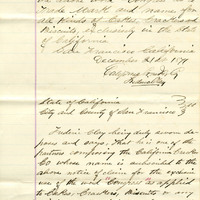 Trade Mark and name for
all kinds of Cakes, Crackers and
Biscuits, exclusively in the State
of California
San Francisco California
December 31st 1879
State of California
City and County of San Francisco } ss
being duly sworn de-
poses and says, that he is one of the
partners composing the California Cracker
Co whose name is subscribed to the
above notice of claim for the exclusive
use of the word "Congress" as applied
to Cakes, Crackers, Biscuits or any